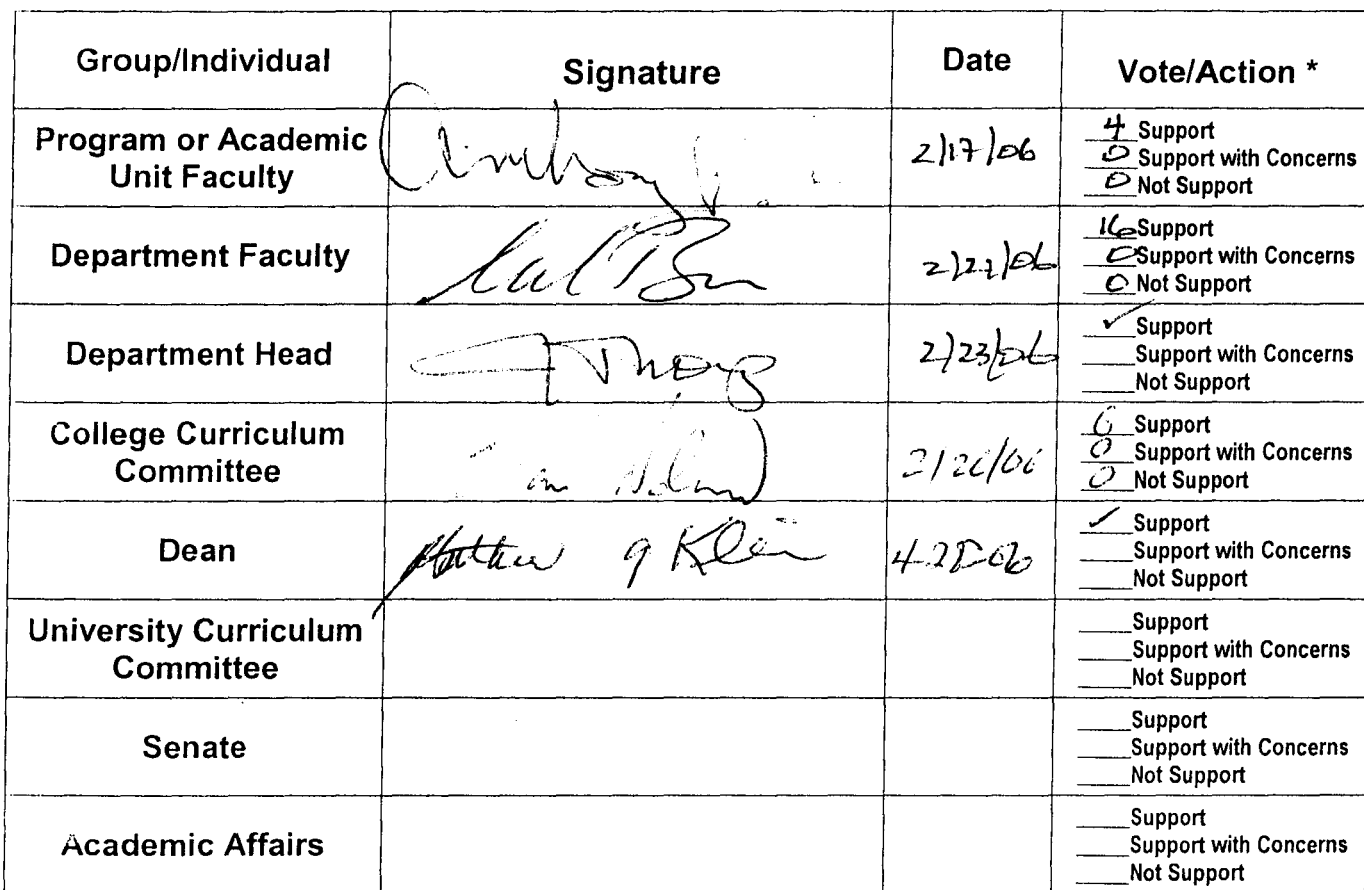 Group/Individual Signature Date Vote/Action *
Program or Academic
Unit Faculty
Anthony
2/17/06
4 Support
0 Support with Concerns
0 Not Support
Department Faculty
2/22/06
16 Support
0 Support with Concerns
0 Not Support
Department Head
2/23/06
✓ Support
___Support with Concerns
___Not Support
College Curriculum
Committee
6 Support
0 Support with Concerns
0 Not Support
Dean
Klein
4-28-06
✓ Support
___Support with Concerns
___Not Support
University Curriculum
Committee
___Support
___Support with Concerns
___Not Support
Senate
___Support
___Support with Concerns
___Not Support
Academic Affairs
___Support
___Support with Concerns
___Not Support